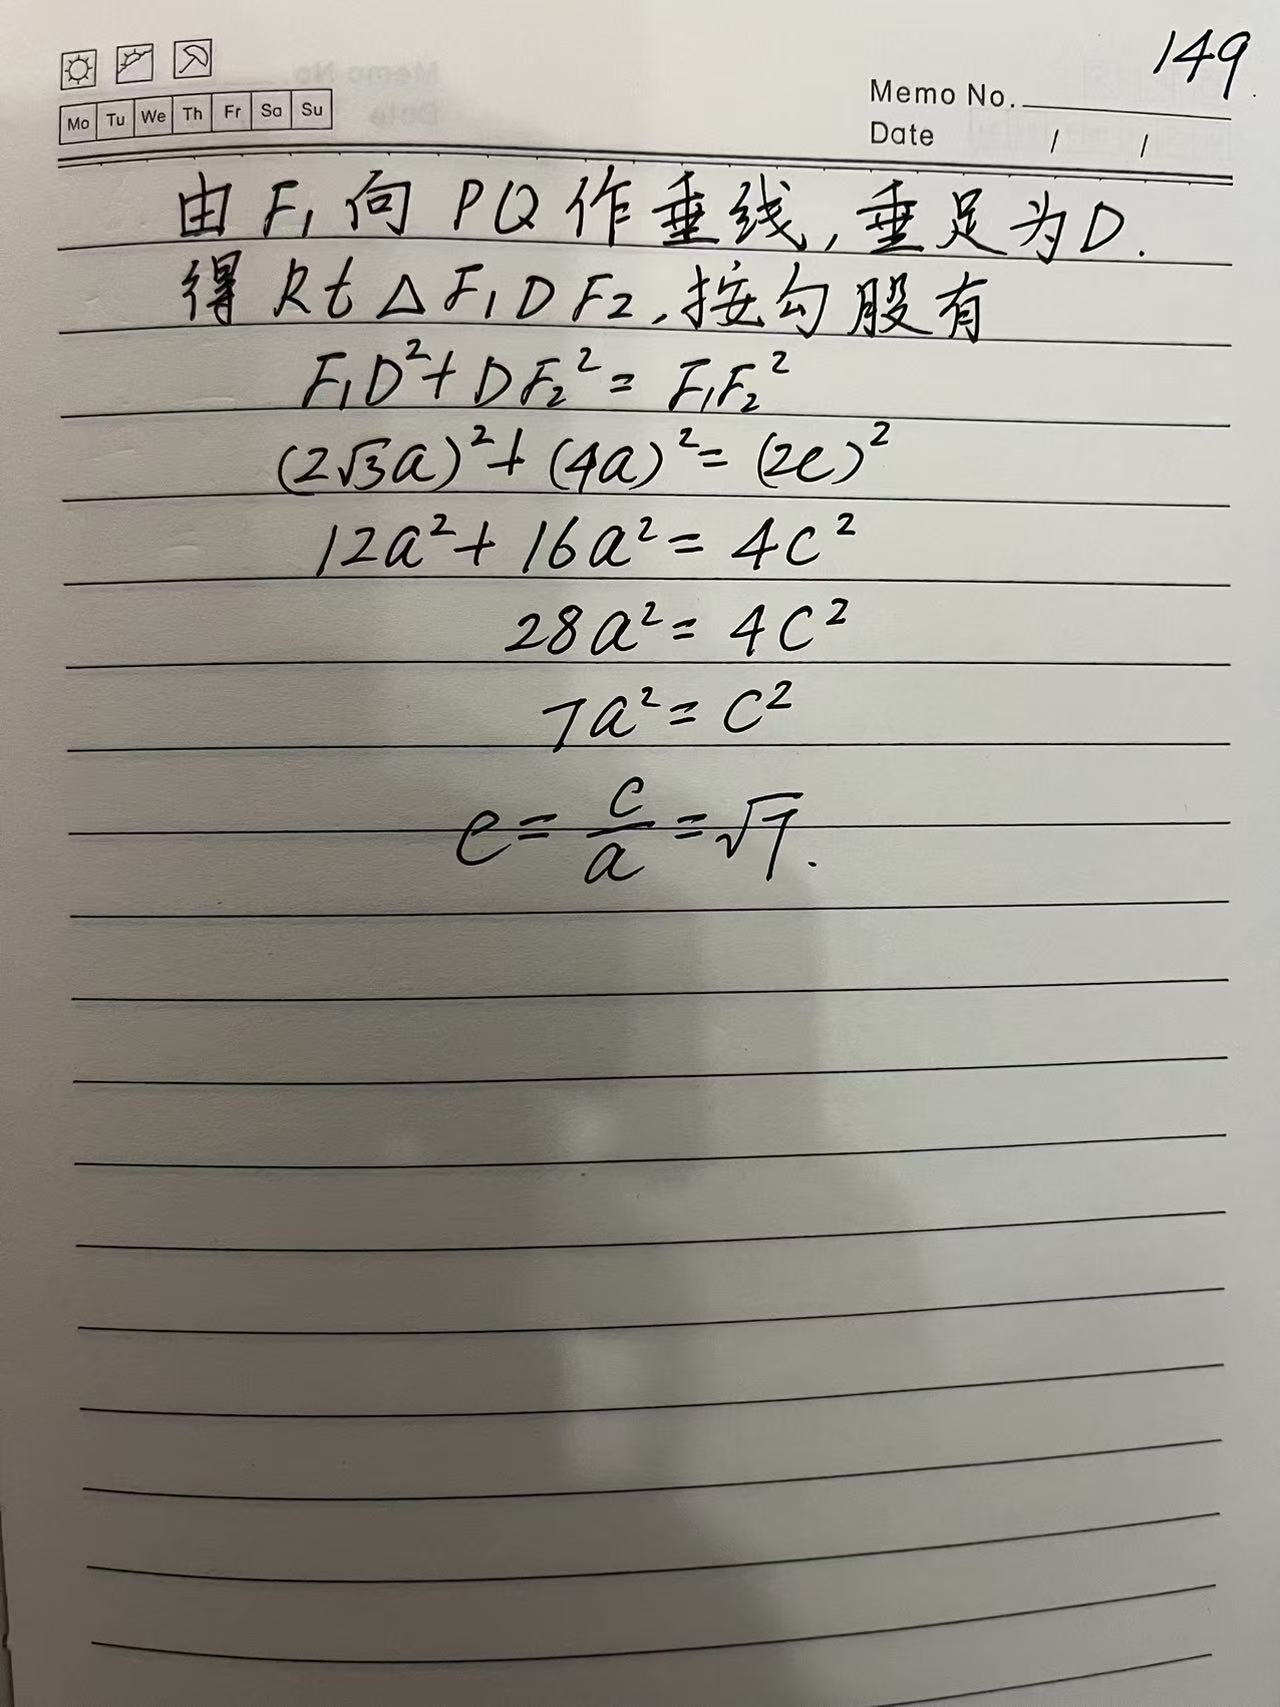 149
Mo Tu We Th Fr Sa Su
Memo No.
Date / /
由F₁向PQ作垂线,垂足为D.
得Rt△F₁DF₂,按勾股有
F₁D²+DF₂²=F₁F₂²
(2√3a)²+(4a)²=(2c)²
12a²+16a²=4c²
28a²=4c²
7a²=c²
e=c/a=√7.